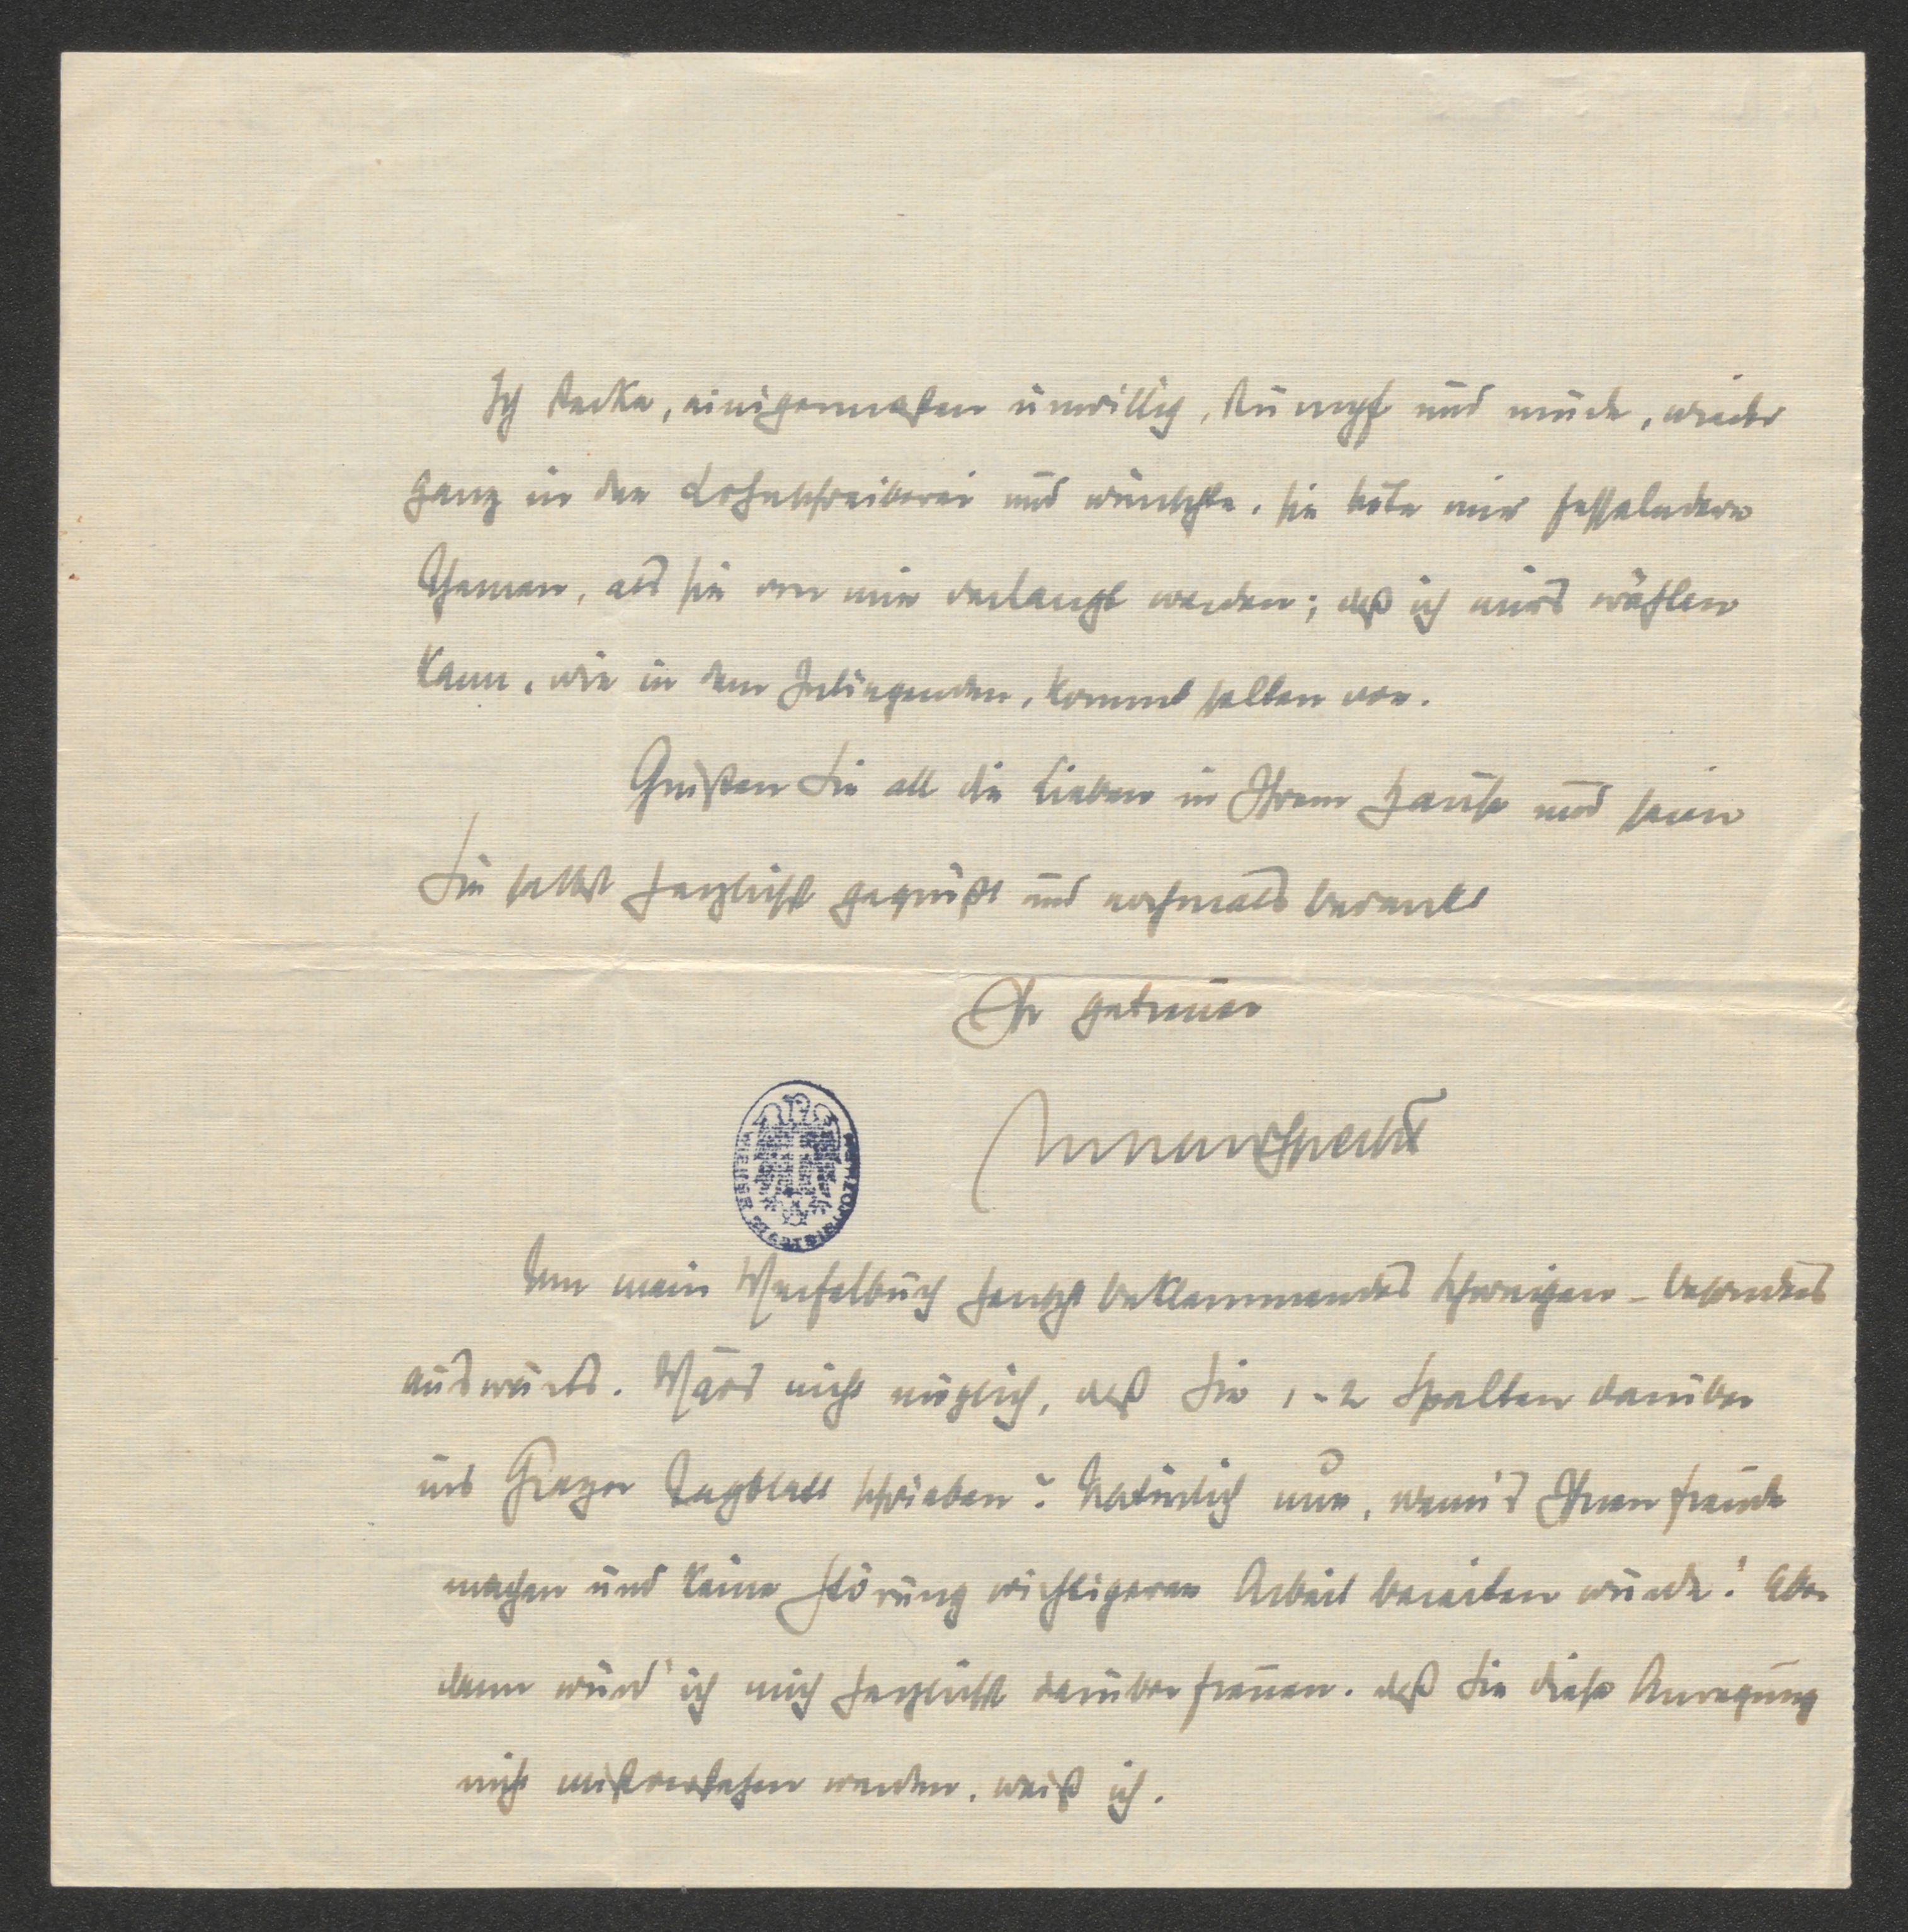 Ich stecke, einigermaßen unwillig, stumpf und müde, wieder
ganz in der Lohnschreiberei und wünschte, sie böte mir fesselndere
Themen, als sie von mir verlangt werden; daß ich mirs wählen
kann, wie in dem Inliegenden, kommt selten vor.
Grüßen Sie all die Lieben in Ihrem Hause und seien
Sie selbst herzlichst gegrüßt und nochmals bedankt
Ihr getreuer
Richard Specht
Um mein Werfelbuch herrscht beklemmendes Schweigen – besonders
auswärts. Wärs nicht möglich, daß Sie 1-2 Spalten darüber
ins Grazer Tagblatt schrieben? Natürlich nur, wenn's Ihnen Freude
machen und keine Störung wichtigerer Arbeit bereiten würde! Aber
dann würd' ich mich herzlichst darüber freuen. Daß Sie diese Anregung
nicht mißverstehen werden, weiß ich.